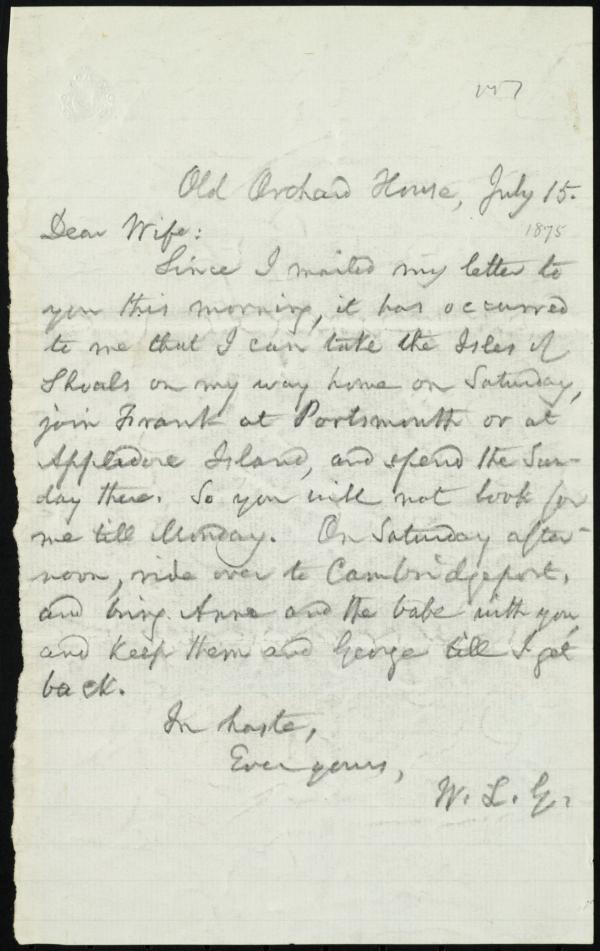 157
Old Orchard House, July 15.
1875
Dear Wife:
Since I mailed my letter to
you this morning, it has occurred
to me that I can take the Isles of
Shoals on my way home on Saturday,
join Frank at Portsmouth or at
Appledore Island, and spend the Sun-
day there. So you will not look for
me till Monday. On Saturday after-
noon, ride over to Cambridgeport,
and bring Anne and the babe with you,
and keep them and George till I get
back.
In haste,
Ever yours,
W. L. G.